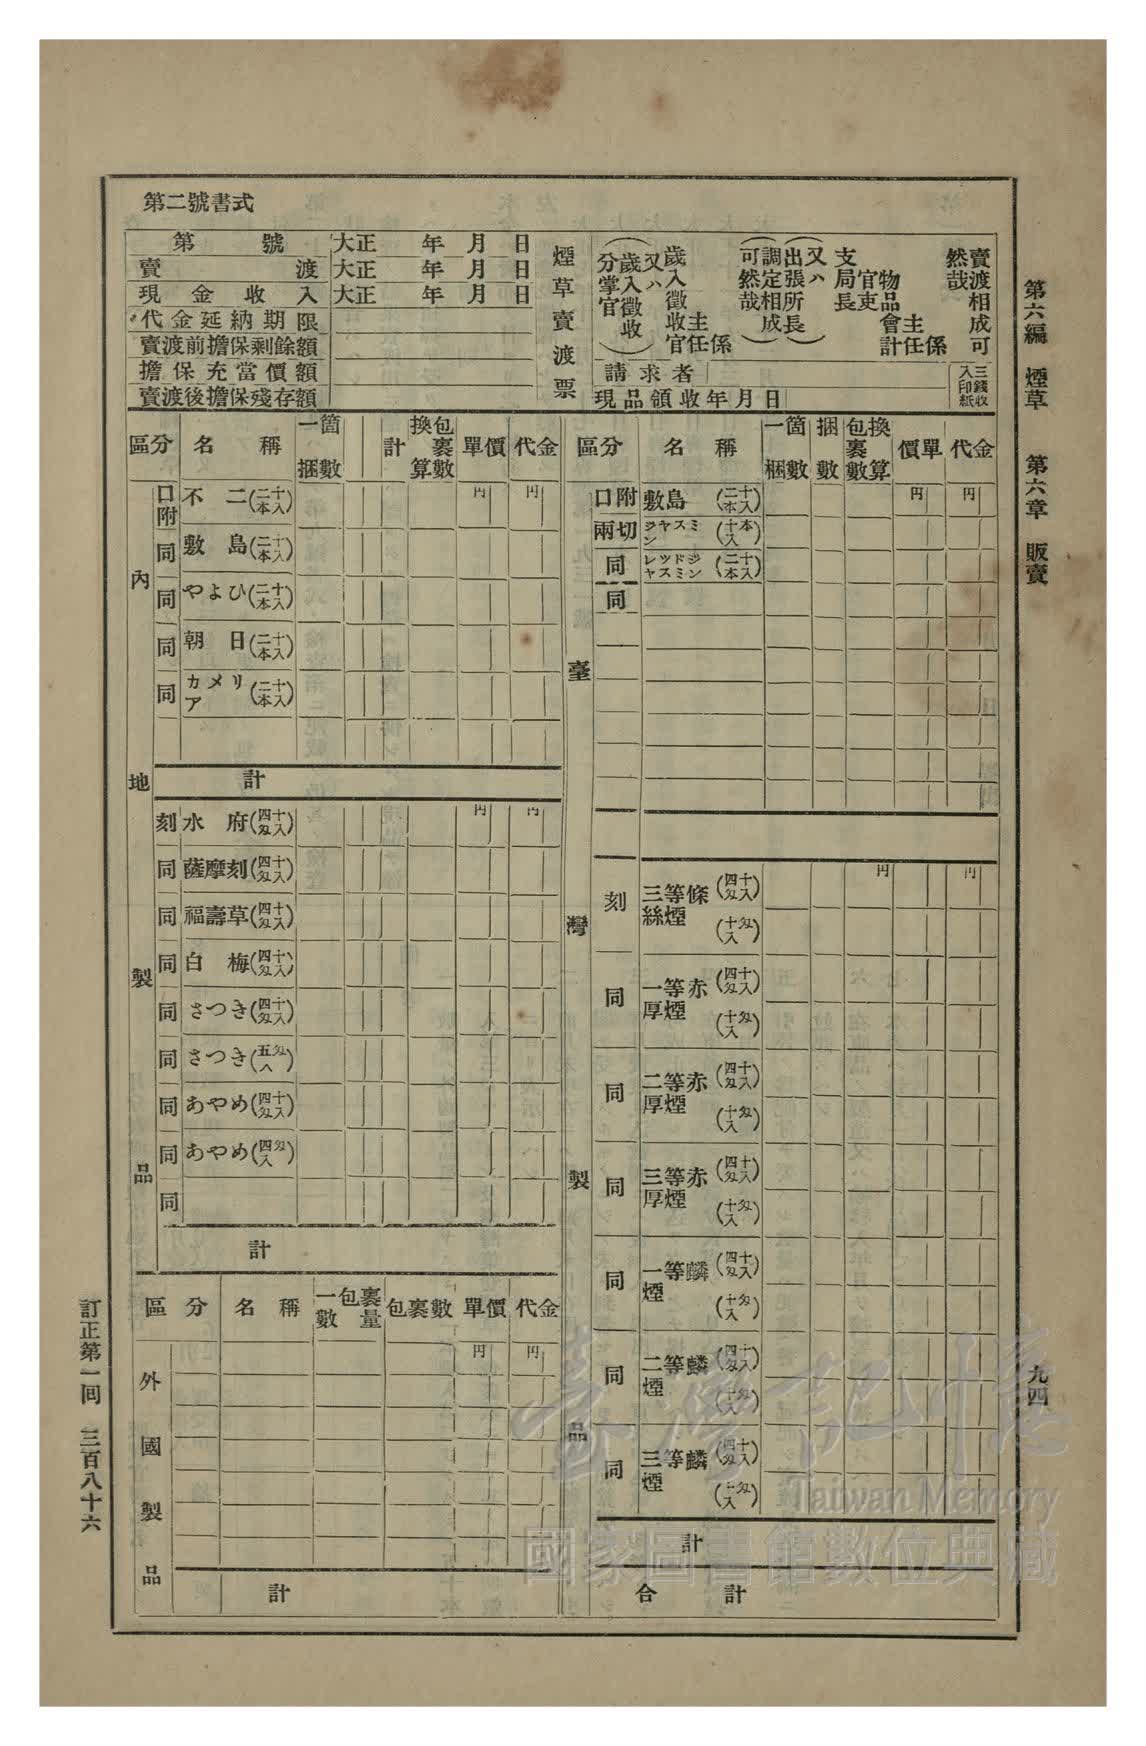 第六編 煙草 第六章 販賣
九四
第二號書式
第 號 大正 年 月 日
賣 渡 大正 年 月 日
現金收入 大正 年 月 日
代金延納期限
賣渡前擔保剩餘額
擔保充當價額
賣渡後擔保殘存額
煙草賣渡票
賣渡相成可然哉
係
主任
物品會計官吏
支局長
又ハ
(出張所長)
(調定相成可然哉)
係
主任
歲入徵收官
又ハ
(歲入徵收分掌官)
請求者
三錢收入印紙
現品領收年月日
區分 名稱 一箇梱數 計 換算包裹數 單價 代金
內地製品
口附 不二(二十本入) 円 円
同 敷島(二十本入)
同 やよひ(二十本入)
同 朝日(二十本入)
同 カメリア(二十本入)
計
刻 水府(四十匁入) 円 円
同 薩摩刻(四十匁入)
同 福壽草(四十匁入)
同 白梅(四十匁入)
同 さつき(四十匁入)
同 さつき(五匁入)
同 あやめ(四十匁入)
同 あやめ(四匁入)
同
計
區分 名稱 一包裹數量 包裹數 單價 代金
外國製品
円 円
計
區分 名稱 一箇梱數 梱數 換算包裹數 單價 代金
臺灣製品
口附 敷島(二十本入) 円 円
兩切 ジヤスミン(十本入)
同 レツドジヤスミン(二十本入)
同
刻 三等條絲煙(四十匁入) 円 円
(十匁入)
同 一等赤厚煙(四十匁入)
(十匁入)
同 二等赤厚煙(四十匁入)
(十匁入)
同 三等赤厚煙(四十匁入)
(十匁入)
同 一等麟煙(四十匁入)
(十匁入)
同 二等麟煙(四十匁入)
(十匁入)
同 三等麟煙(四十匁入)
(十匁入)
計
合計
訂正第一回 三百八十六
臺灣記憶
Taiwan Memory
國家圖書館數位典藏